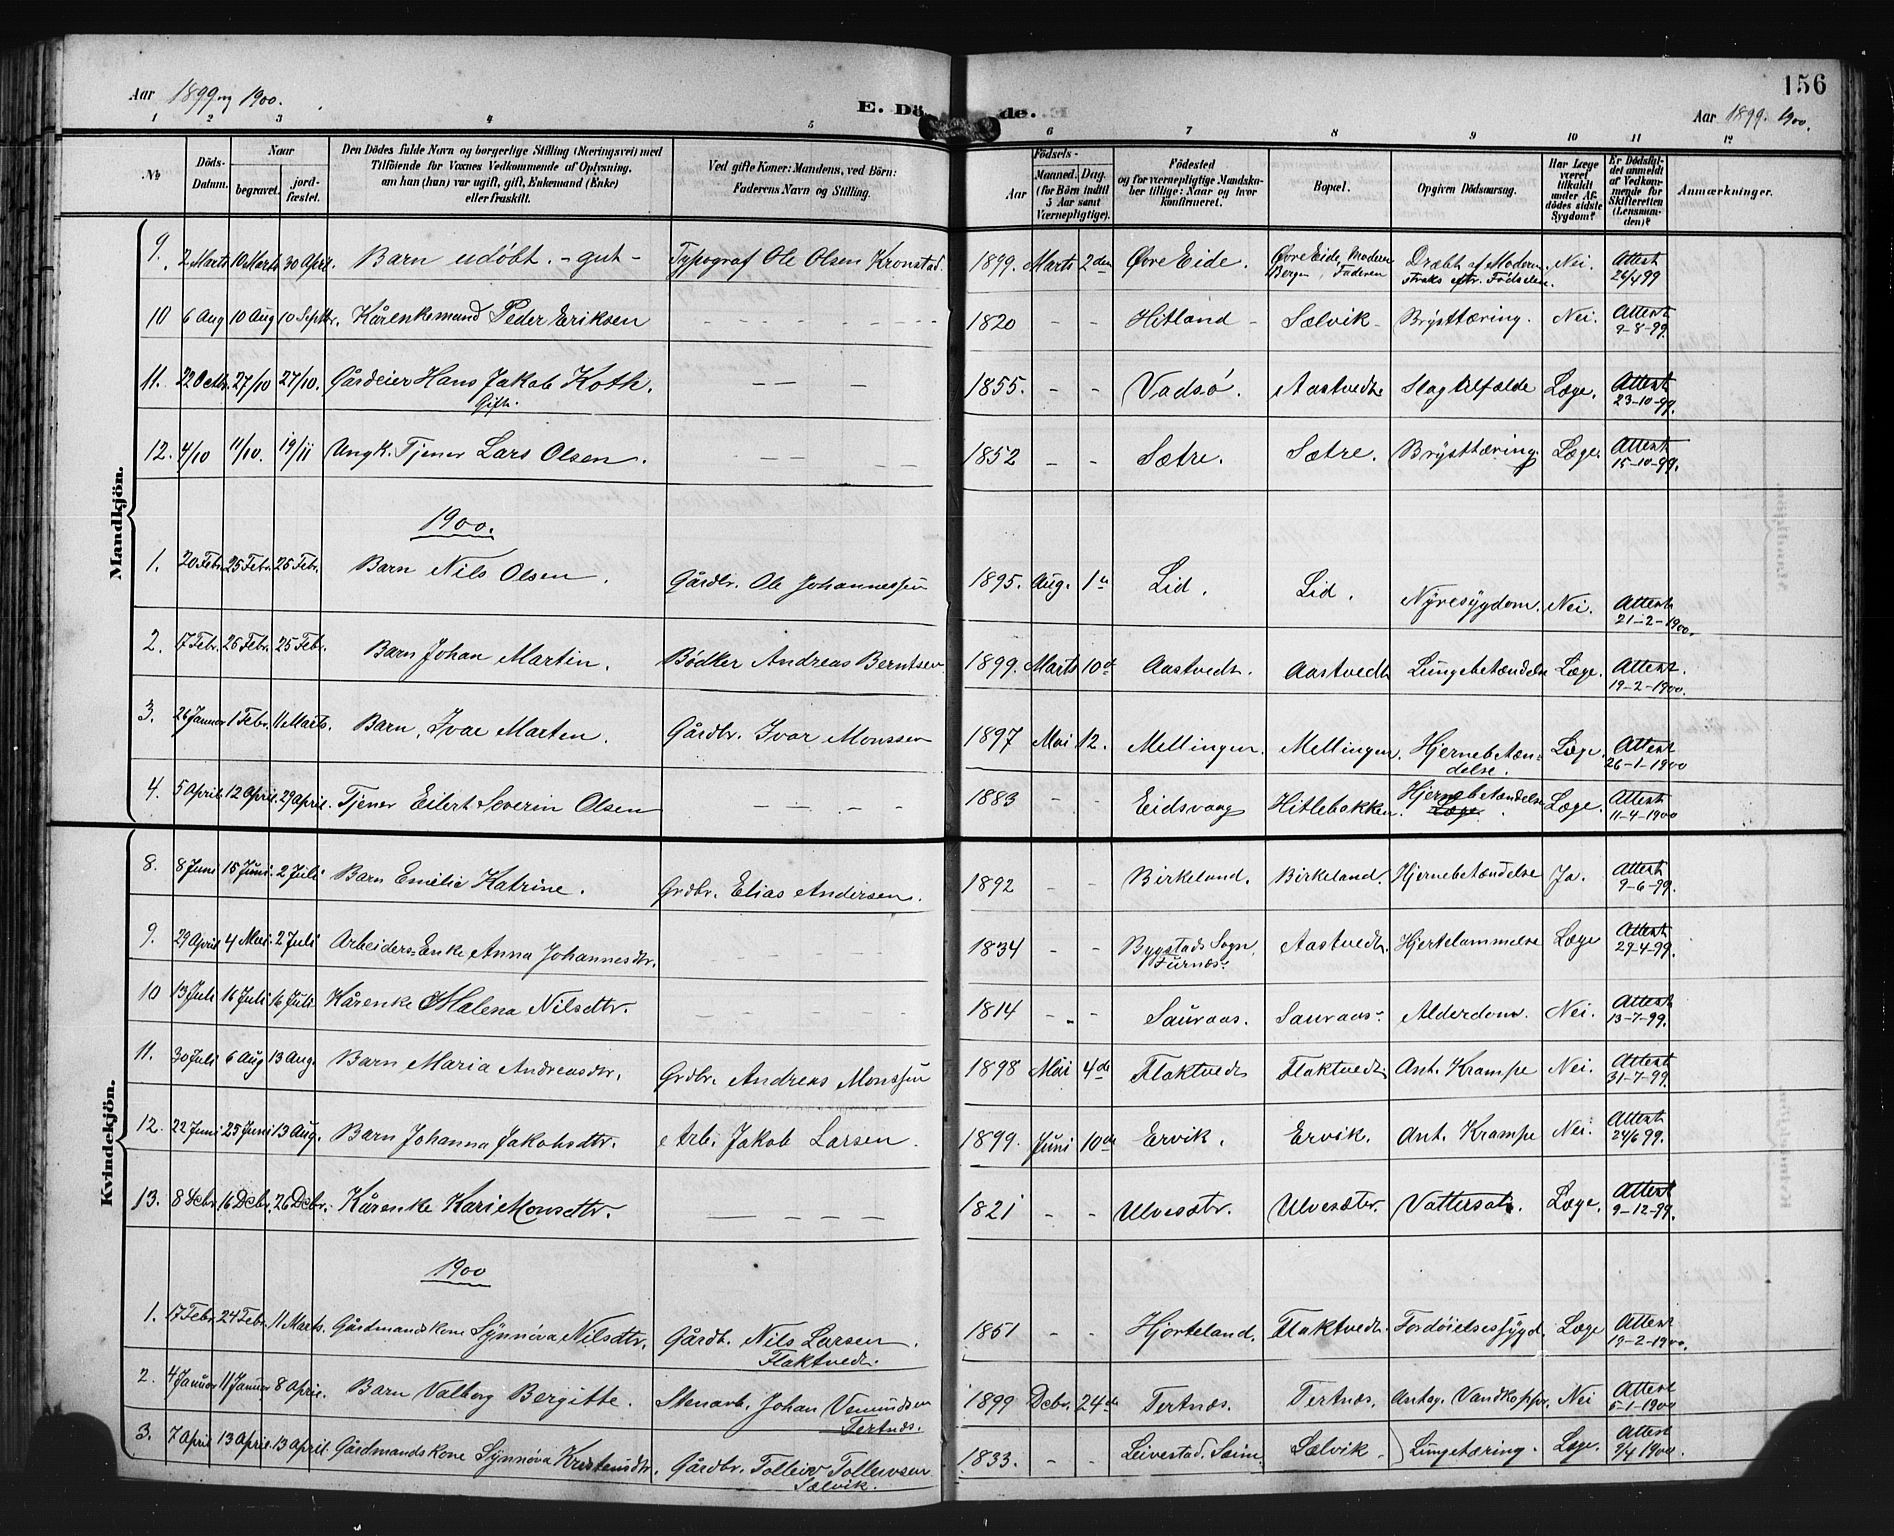 156
Aar 1899 og 1900.
E. Dö de.
Aar 1899. 1900.
1 2 3 4 5 6 7 8 9 10 11 12
№
Döds-Datum.
Naar
begravet.
jord-fæstet.
Den Dödes fulde Navn og borgerlige Stilling (Næringsvei) med
Tilföiende for Voxnes Vedkommende af Oplysning,
om han (hun) var ugift, gift, Enkemand (Enke)
eller fraskilt.
Ved gifte Koner: Mandens, ved Börn:
Faderens Navn og Stilling.
Födsels-
Aar
Maaned. Dag.
(for Börn indtil
5 Aar samt
Værnepligtige).
Födested
og for værnepligtige Mandska-
ber tillige: Naar og hvor
konfirmeret.
Bopæl.
Opgiven Dödsaarsag.
Har Læge
været
tilkaldt
under Af-
dödes sidste
Sygdom?
Er Dödsfal-
det anmeldt
af Vedkom-
mende for
Skifteretten
(Lensman-
den)?
Anmærkninger.
Mandkjön.
9. 2 Marts 10 Marts 30 April. Barn udöbt. - gut - Typograf Ole Olsen Kronstad. 1899. Marts 2den Övre Eide. Övre Eide, Moderen Bergen, Faderen Dræbt af Moderen straks eftr. Fødselen. Nei. Attest 26/4 99
10 6 Aug 10 Aug 10 Septbr. Kårenkemand Peder Eriksen - - - 1820 - - Hitland - Sælvik - Brysttæring. Nei. Attest 9-8-99.
11. 22 Octbr. 27/10 27/10. Gårdeier Hans Jakob Koth. Gift. - - - 1855. - - Vadsö. Aastvedt Slagtilfælde Læge. Attest 23-10-99.
12. 4/10 11/10. 19/11 Ungk. Tjener Lars Olsen. - - 1852 - - Sætre. Sætre. Brysttæring. Læge. Attest 15-10-99.
1900.
1. 20 Febr. 25 Febr. 25 Febr. Barn Nils Olsen. Gårdbr. Ole Johannessen 1895. Aug. 1 Lid. Lid. Nyresygdom. Nei. Attest 21-2-1900.
2. 17 Febr. 26 Febr. 25 Febr. Barn Johan Martin. Bödker Andreas Berntsen 1899. Marts 10de Aastvedt. Aastvedt Lungebetændelse Læge. Attest 19-2-1900.
3. 26 Januar 1 Febr. 11 Marts. Barn, Ivar Marten. Gårdbr. Ivar Monssen 1897 Mai 12. Mellingen. Mellingen. Hjernebetændelse. Læge. Attest 26-1-1900
4. 5 April. 12 April. 29 April. Tjener Eilert Severin Olsen - - - - 1883 - - Eidsvaag Hitlebakken. Hjernebetændelse Læge. Læge. Attest 11-4-1900
Kvindekjön.
8. 8 Juni 15 Juni. 2 Juli Barn Emilie Katrine. Grdbr. Elias Andersen. 1892 - - Birkeland. Birkeland. Hjernebetændelse Ja. Attest 9-6-99.
9. 29 April 4 Mai. 2 Juli Arbeiders-Enke Anna Johannesdtr. - - - 1834 - - Bygstads Sogn, Furnæs. Aastvedt. Hjertelammelse Læge Attest 29-4-99.
10 13 Juli 16 Juli 16 Juli. Kårenke Malena Nilsdtr. - - - 1814 - - Sauraas. Sauraas. Alderdom. Nei. Attest 13-7-99.
11. 30 Juli 6 Aug 13 Aug. Barn Maria Andreasdtr. Grdbr. Andreas Monssen 1898 Mai 4de Flaktvedt Flaktvedt. Ant. Krampe Nei. Attest 31-7-99.
12. 22 Juni 25 Juni 13 Aug. Barn Johanna Jakobsdtr. Arb. Jakob Larsen. 1899. Juni 10de Ervik. Ervik. Ant. Krampe Nei. Attest 24/6 99.
13. 8 Decbr 16 Decbr. 26 Decbr. Kårenke Kari Monsdtr. - - - - 1821 - - Ulvesætr. Ulvesætr. Vattersot. Læge. Attest 9-12-99.
1900
1. 17 Febr. 24 Febr. 11 Marts. Gårdmandskone Synnöva Nilsdtr. Gårdb. Nils Larsen. Flaktvedt. 1861 - - Hjorteland. Flaktvedt. Fordöielsessygd. Læge Attest 19-2-1900.
2. 4 Januar 11 Januar 8 April. Barn Valborg Bergitte. Stenarb. Johan Vemundsen Tertnæs. 1899 Decbr. 24de Tertnæs. Tertnæs. Antag. Vandkopper. Nei Attest 5-1-1900
3. 7 April 13 April. 13 April. Gårdmandskone Synnöva Kristensdtr. Gårdbr. Tolleiv Tolleivsen Sælvik. 1833. - - Leivestad. Sælvik Lungetæring. Læge. Attest 9/4 1900.